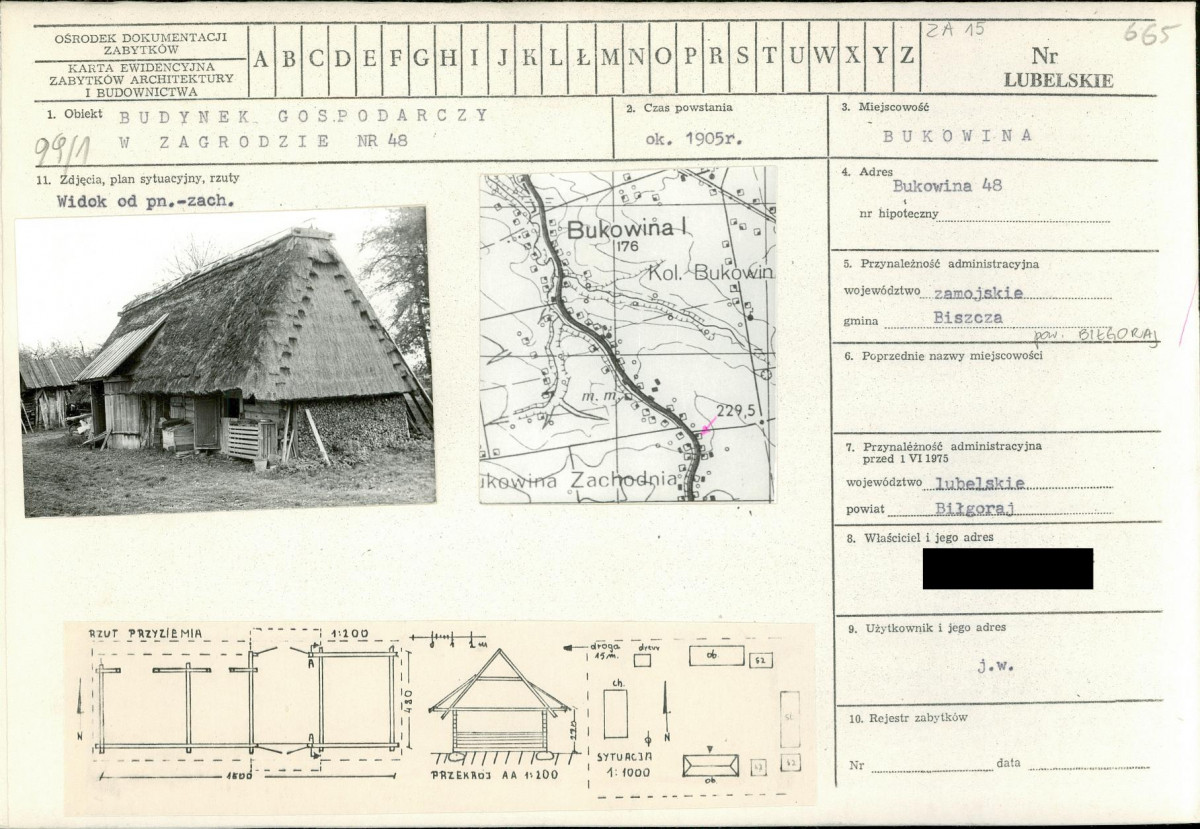 OŚRODEK DOKUMENTACJI
ZABYTKÓW
KARTA EWIDENCYJNA
ZABYTKÓW ARCHITEKTURY
I BUDOWNICTWA
A B C D E F G H I J K L Ł M N O P R S T U W X Y Z
ZA 15
665
Nr
LUBELSKIE
1. Obiekt BUDYNEK GOSPODARCZY
W ZAGRODZIE NR 48
99/1
2. Czas powstania
ok. 1905r.
3. Miejscowość
BUKOWINA
11. Zdjęcia, plan sytuacyjny, rzuty
Widok od pn.-zach.
Bukowina I
176
Kol. Bukowin
m. m.
229,5
ukowina Zachodnia
4. Adres
Bukowina 48
nr hipoteczny
5. Przynależność administracyjna
województwo zamojskie
gmina Biszcza
pow. BIŁGORAJ
6. Poprzednie nazwy miejscowości
7. Przynależność administracyjna
przed 1 VI 1975
województwo lubelskie
powiat Biłgoraj
8. Właściciel i jego adres
9. Użytkownik i jego adres
j.w.
10. Rejestr zabytków
Nr data
RZUT PRZYZIEMIA 1:200
A
A
N
480
1500
0 1 2 m
220
PRZEKRÓJ AA 1:200
droga
15 m.
drew
ob.
ch.
N
SYTUACJA
1:1000
ob.